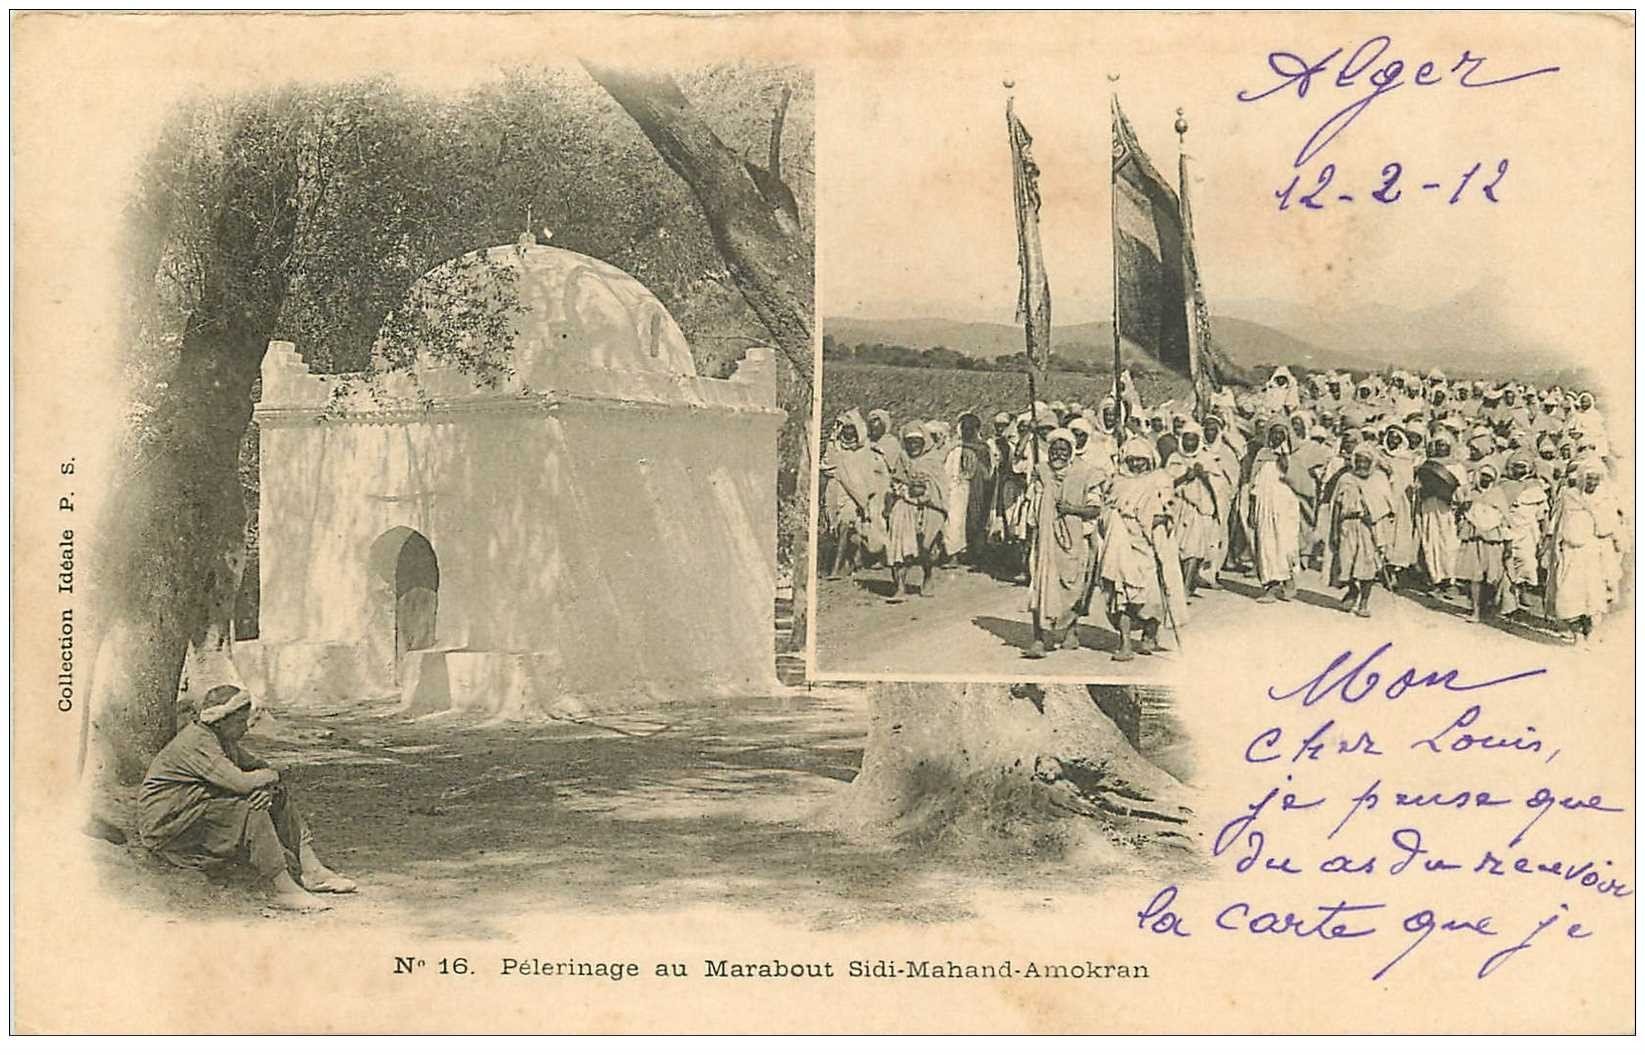 Alger
12-2-12
Collection Idéale P. S.
Mon
cher Louis,
je pense que
du as du recevoir
la carte que je
Nº 16. Pélerinage au Marabout Sidi-Mahand-Amokran